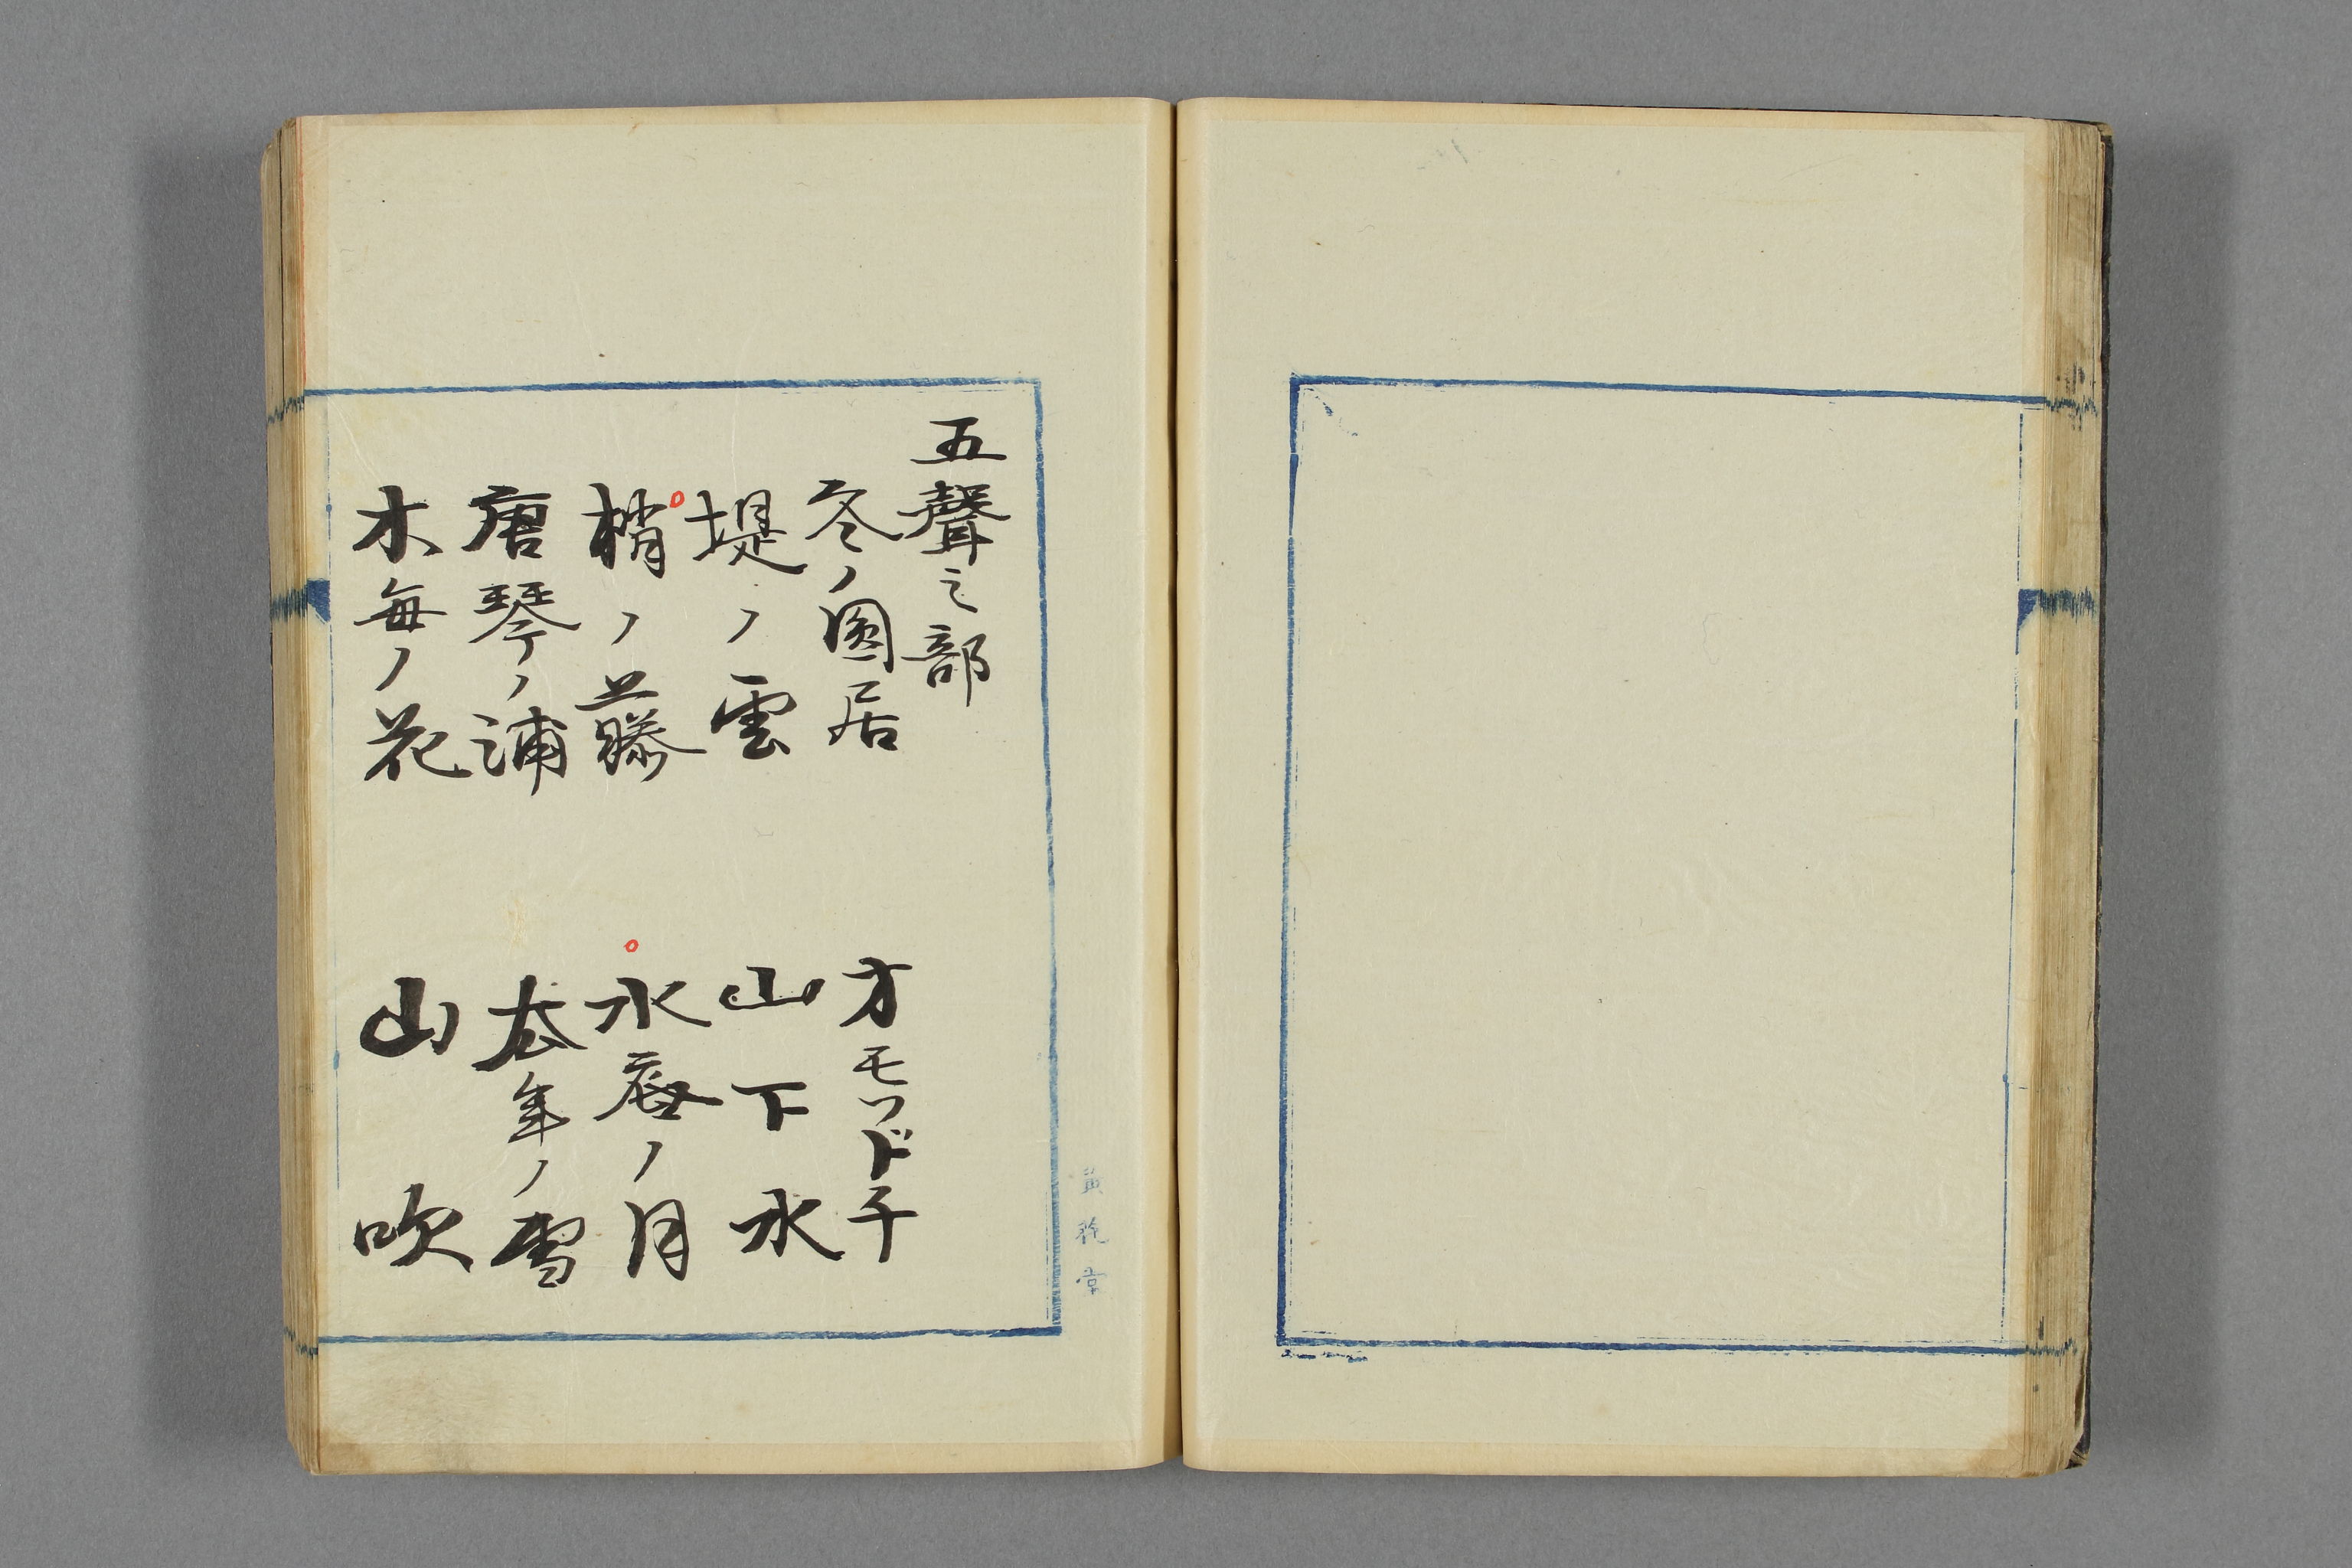 五聲之部
冬ノ圓居
堤ノ雲
梢ノ藤
唐琴ノ浦
木毎ノ花
オモヅド千
山下水
水底ノ月
老年ノ雪
山吹
堂